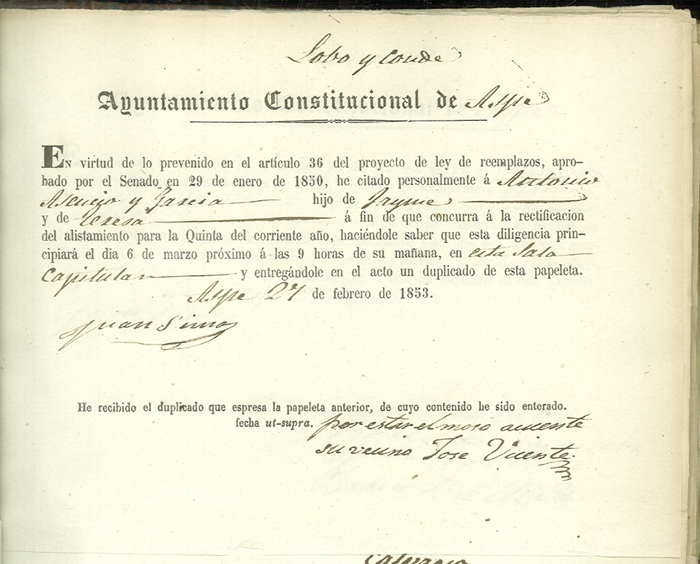 Lobo y Conde
Ayuntamiento Constitucional de Aspe
En virtud de lo prevenido en el artículo 36 del proyecto de ley de reemplazos, apro-
bado por el Senado en 29 de enero de 1850, he citado personalmente á Antonio
Asencio y Garcia hijo de Jayme
y de Teresa á fin de que concurra á la rectificacion
del alistamiento para la Quinta del corriente año, haciéndole saber que esta diligencia prin-
cipiará el dia 6 de marzo próximo á las 9 horas de su mañana, en esta Sala
Capitular y entregándole en el acto un duplicado de esta papeleta.
Aspe 27 de febrero de 1853.
Juan Simo
He recibido el duplicado que espresa la papeleta anterior, de cuyo contenido he sido enterado.
fecha ut-supra. por estar el moso ausente
su vecino Jose Vicente